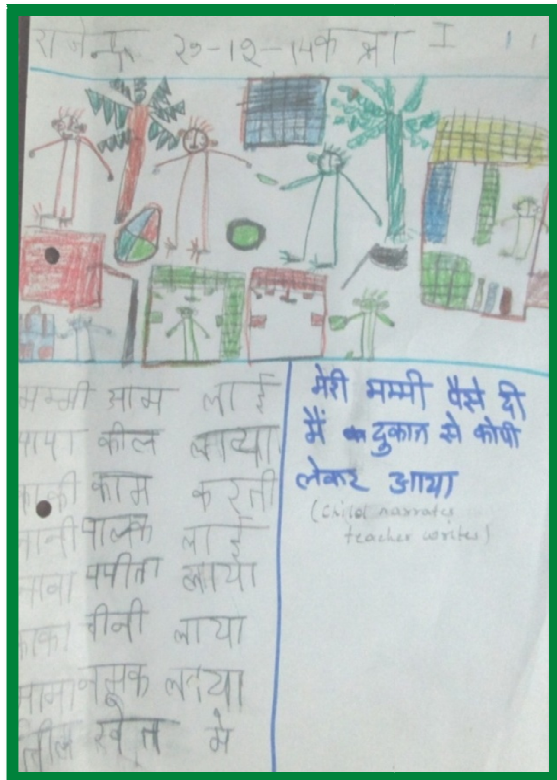 राजेन्द्र २७-१२-१५ कक्षा I
मम्मी आम लाई
पापा कील लाया
काकी काम करती
नानी पालक लाई
नाना पपीता लाया
काका चीनी लाया
मामा नमक लाया
लील खेत मे
मेरी मम्मी पैसे दी
मैं दुकान से कोपी
लेकर आया
(child narrates
teacher writes)